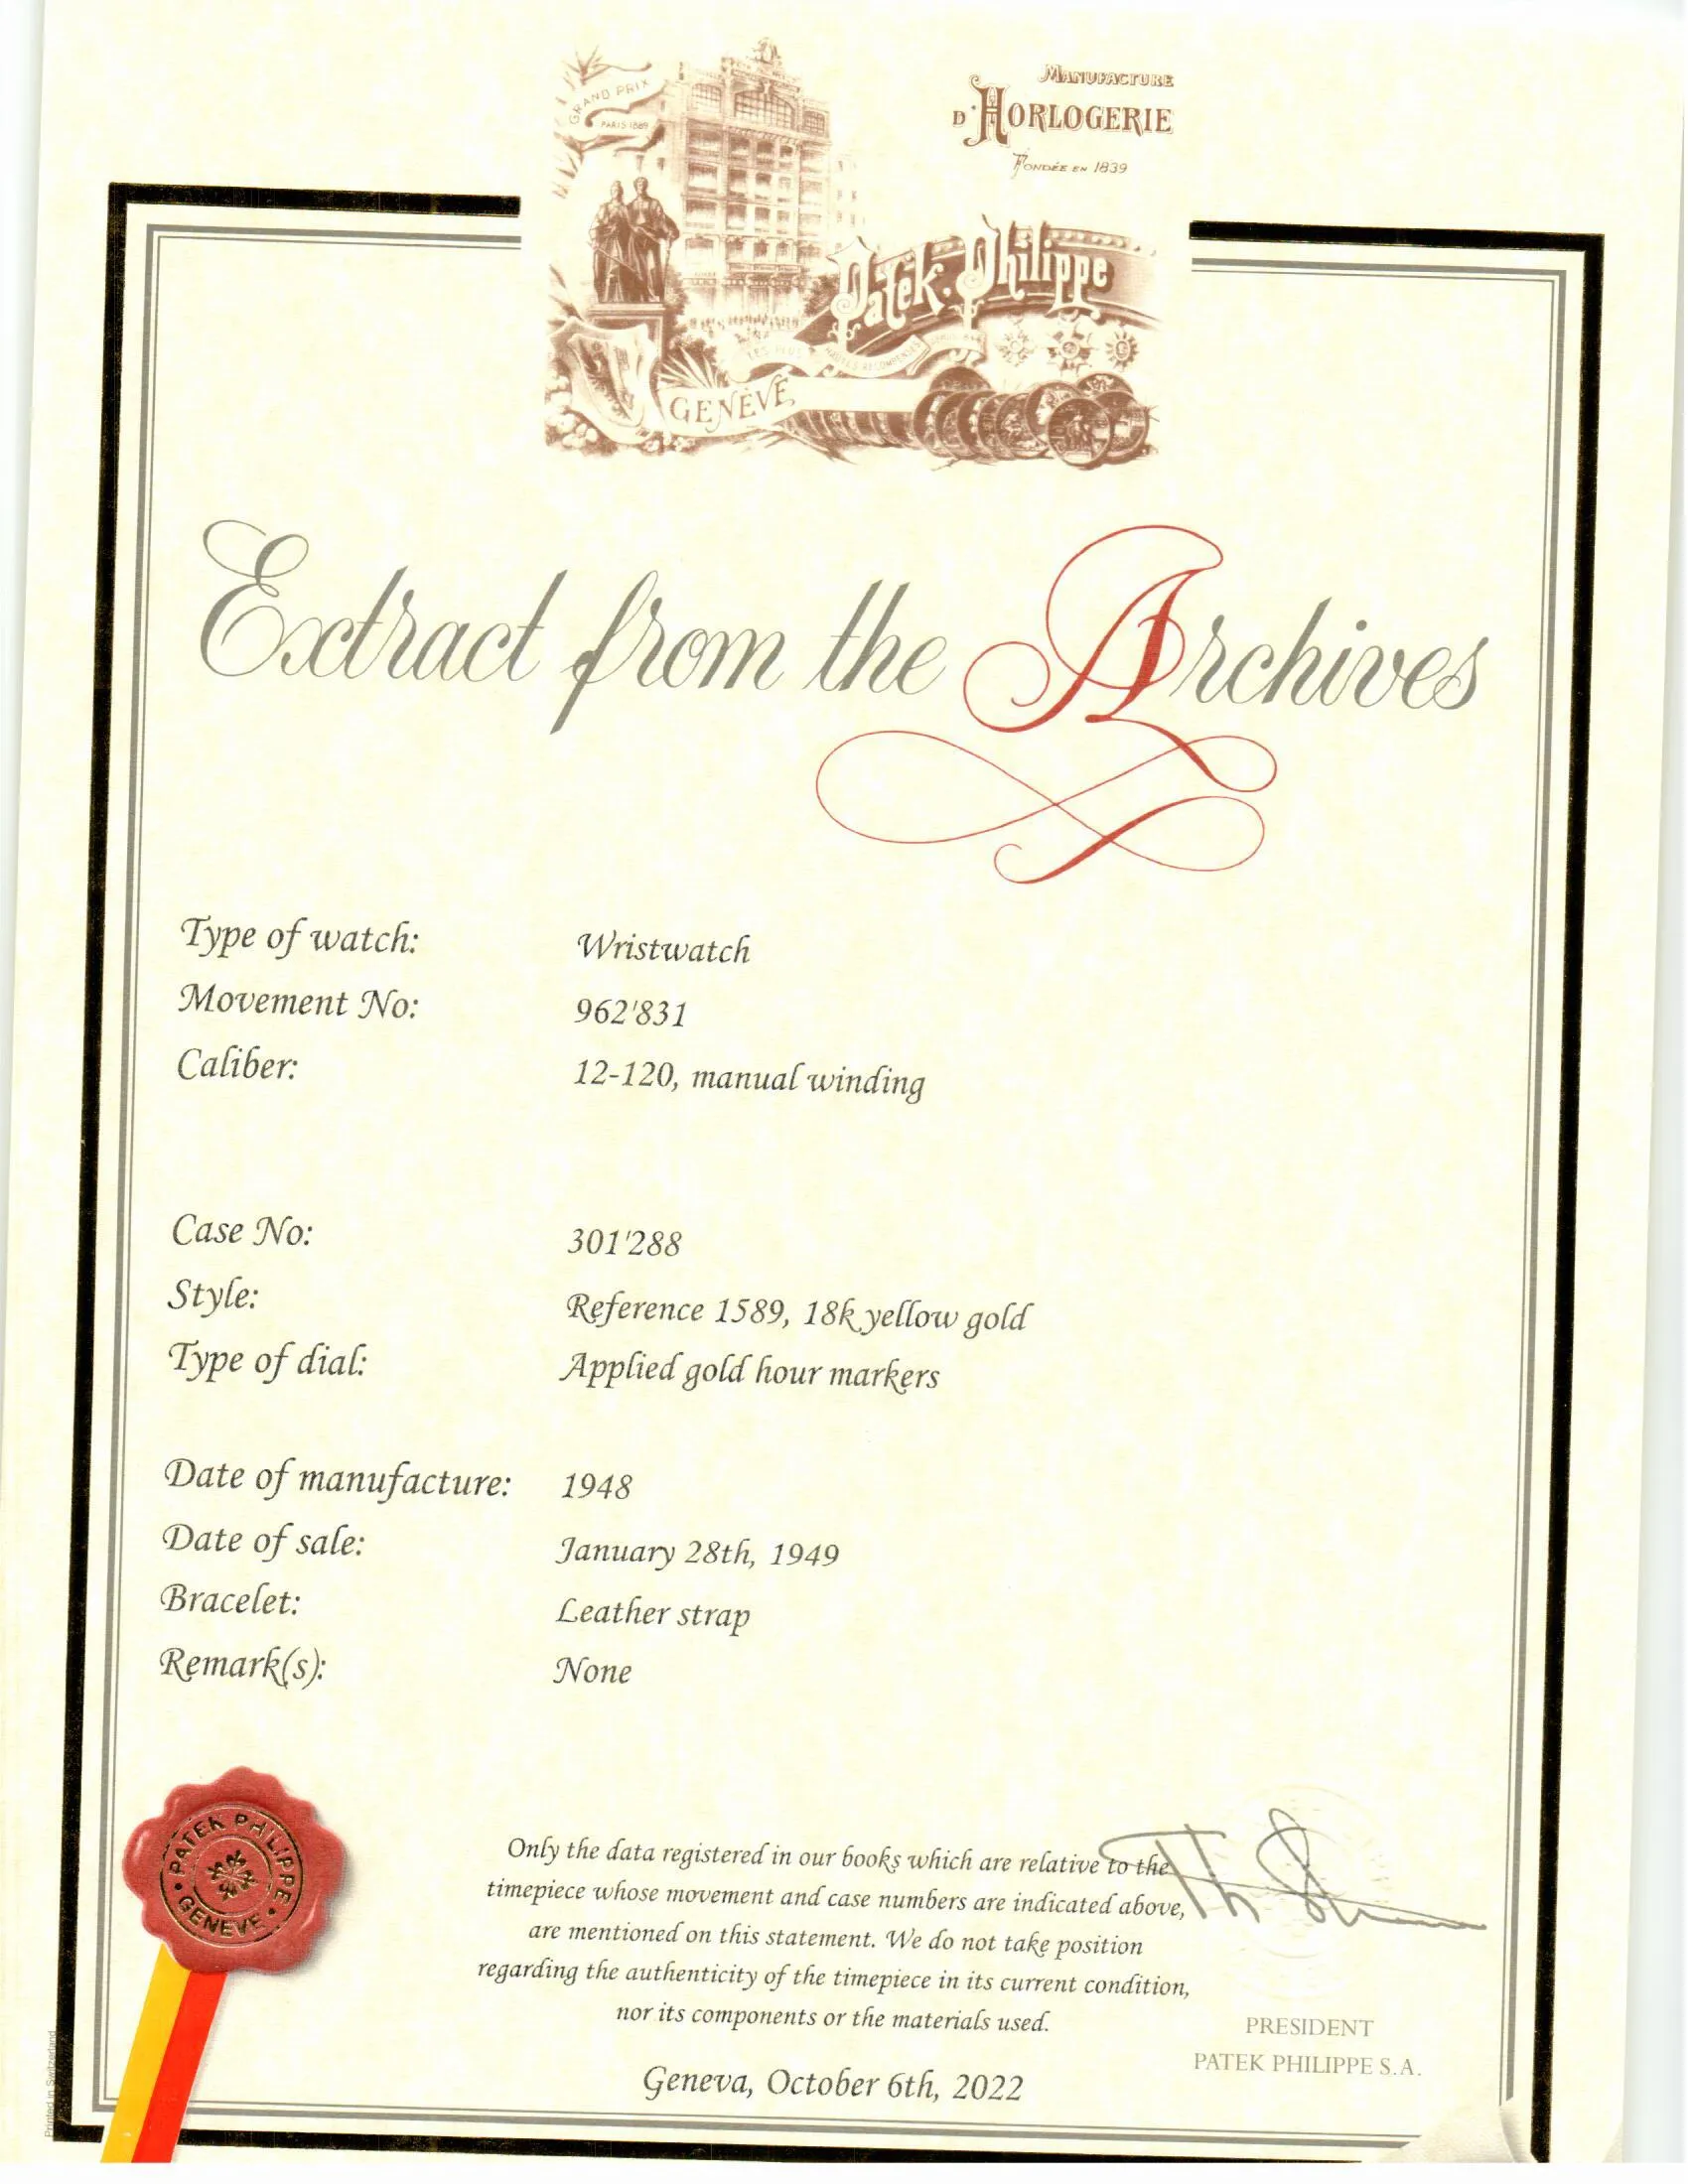 GRAND PRIX
PARIS 1889
MANUFACTURE
D'HORLOGERIE
FONDÉE EN 1839
Patek. Philippe
LES PLUS HAUTES RECOMPENSES
GENÈVE
Extract from the Archives
Type of watch: Wristwatch
Movement No: 962'831
Caliber: 12-120, manual winding
Case No: 301'288
Style: Reference 1589, 18k yellow gold
Type of dial: Applied gold hour markers
Date of manufacture: 1948
Date of sale: January 28th, 1949
Bracelet: Leather strap
Remark(s): None
PATEK PHILIPPE
GENEVE
Only the data registered in our books which are relative to the
timepiece whose movement and case numbers are indicated above,
are mentioned on this statement. We do not take position
regarding the authenticity of the timepiece in its current condition,
nor its components or the materials used.
PRESIDENT
PATEK PHILIPPE S.A.
Geneva, October 6th, 2022
Printed in Switzerland